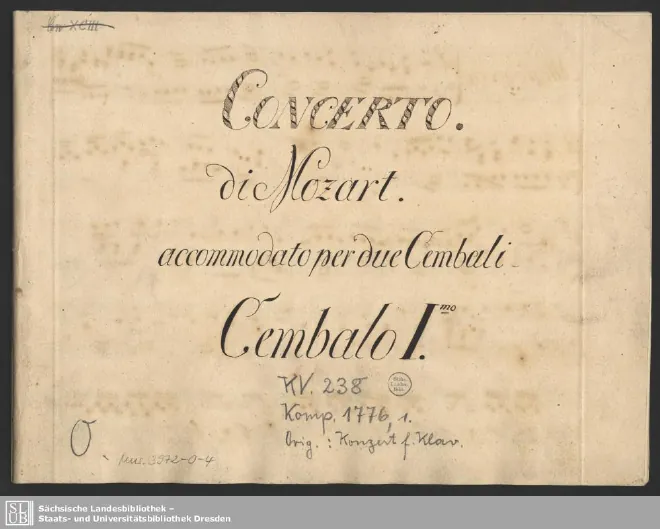 CONCERTO.
di Mozart.
accommodato per due Cembali
Cembalo I.mo
KV. 238
Komp. 1776, 1.
Orig.: Konzert f. Klav.
Mus. 3972-O-4
SLUB
Sächsische Landesbibliothek –
Staats- und Universitätsbibliothek Dresden